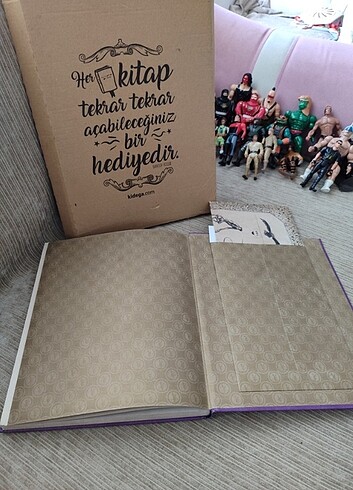 Her kitap
tekrar tekrar
açabileceğiniz
bir
hediyedir.
kidega.com